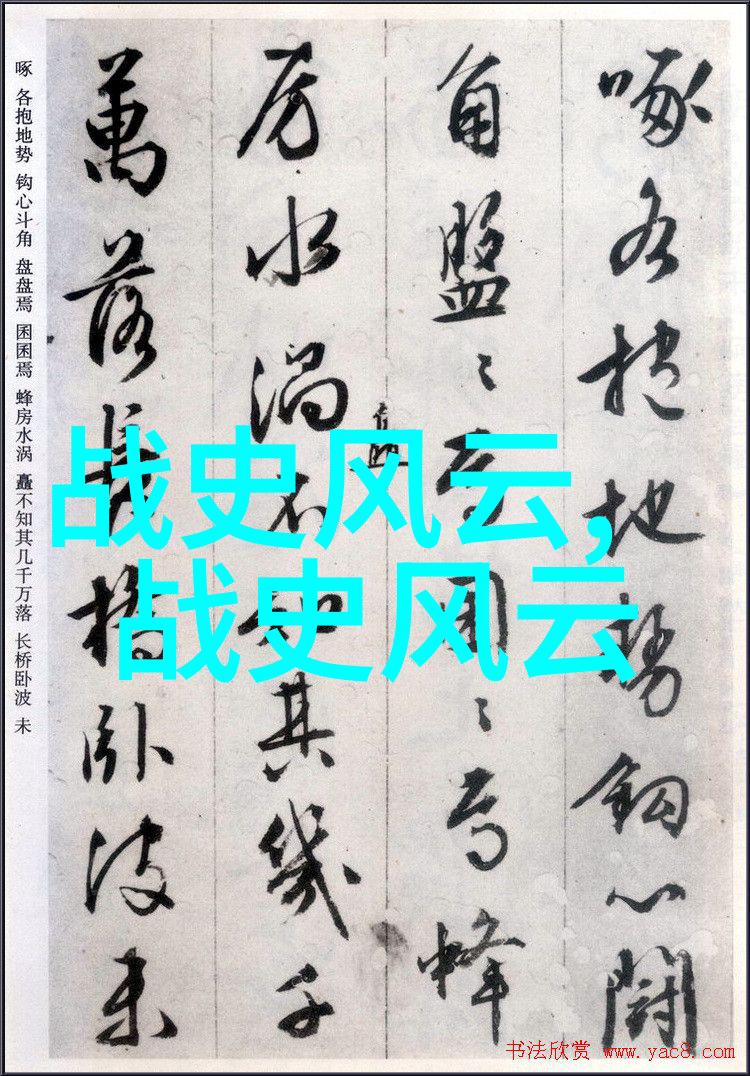 啄各抱地勢鈎心鬪
角盤〻焉囷〻焉蜂
矗
房水渦不知其幾千
萬落長橋臥波未
啄 各抱地势 钩心斗角 盘盘焉 囷囷焉 蜂房水涡 矗不知其几千万落 长桥卧波 未
战史风云,
战史风云
书法欣赏 www.yac8.com